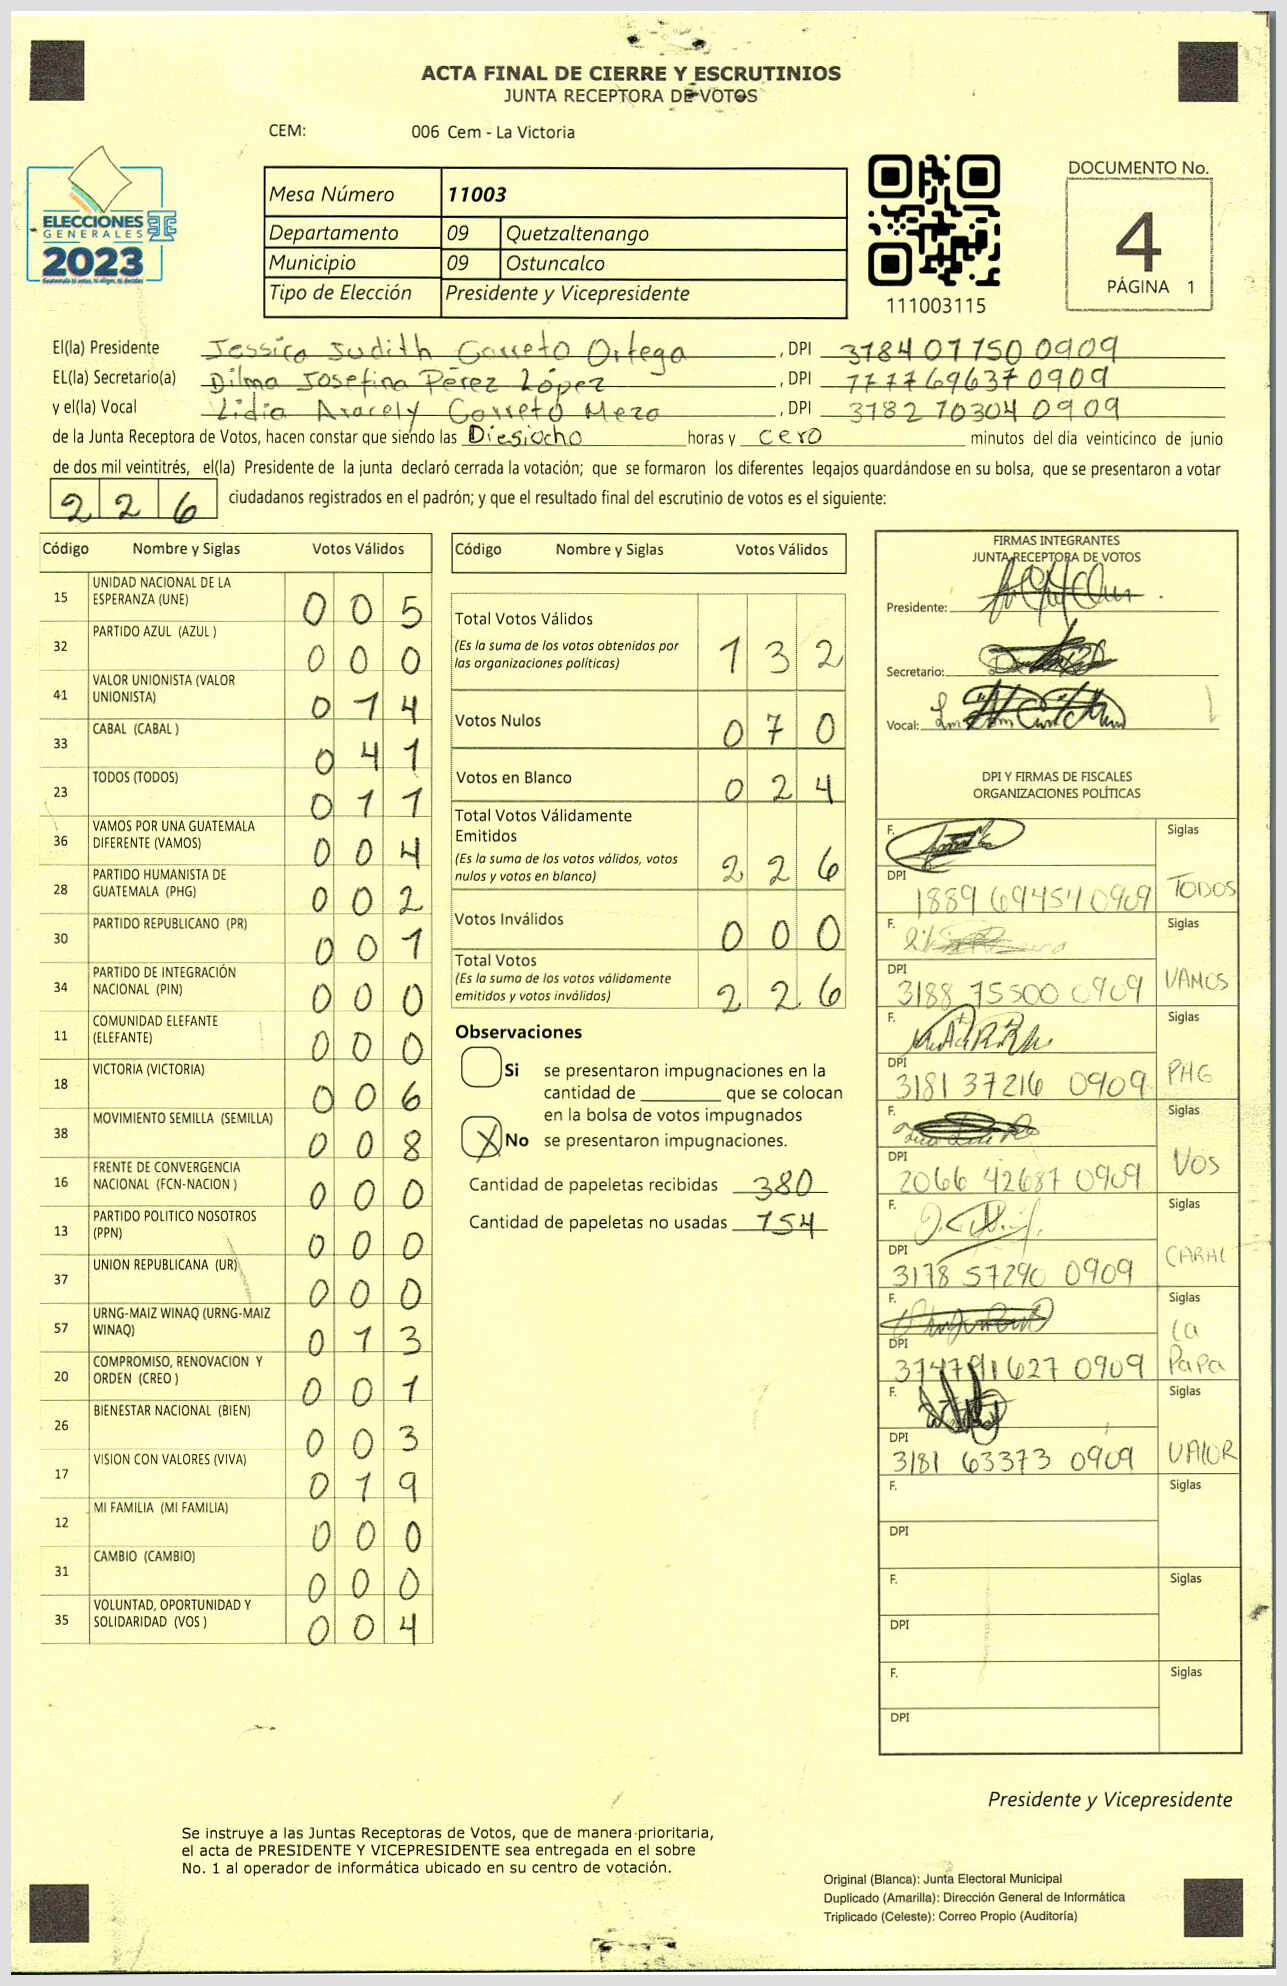 ACTA FINAL DE CIERRE Y ESCRUTINIOS
JUNTA RECEPTORA DE VOTOS
CEM: 006 Cem - La Victoria
ELECCIONES
GENERALES
2023
Mesa Número 11003
Departamento 09 Quetzaltenango
Municipio 09 Ostuncalco
Tipo de Elección Presidente y Vicepresidente
111003115
DOCUMENTO No.
4
PÁGINA 1
El(la) Presidente Jessica Judith Carreto Ortega , DPI 3184 07750 0909
EL(la) Secretario(a) Dilma Josefina Pérez López , DPI 1777 69637 0909
y el(la) Vocal Lidia Aracely Carreto Meza , DPI 3182 70304 0909
de la Junta Receptora de Votos, hacen constar que siendo las Diesiocho horas y cero minutos del día veinticinco de junio
de dos mil veintitrés, el(la) Presidente de la junta declaró cerrada la votación; que se formaron los diferentes legajos guardándose en su bolsa, que se presentaron a votar
226 ciudadanos registrados en el padrón; y que el resultado final del escrutinio de votos es el siguiente:
Código Nombre y Siglas Votos Válidos
15 UNIDAD NACIONAL DE LA ESPERANZA (UNE) 005
32 PARTIDO AZUL (AZUL ) 000
41 VALOR UNIONISTA (VALOR UNIONISTA) 014
33 CABAL (CABAL ) 041
23 TODOS (TODOS) 011
36 VAMOS POR UNA GUATEMALA DIFERENTE (VAMOS) 004
28 PARTIDO HUMANISTA DE GUATEMALA (PHG) 002
30 PARTIDO REPUBLICANO (PR) 001
34 PARTIDO DE INTEGRACIÓN NACIONAL (PIN) 000
11 COMUNIDAD ELEFANTE (ELEFANTE) 000
18 VICTORIA (VICTORIA) 006
38 MOVIMIENTO SEMILLA (SEMILLA) 008
16 FRENTE DE CONVERGENCIA NACIONAL (FCN-NACION ) 000
13 PARTIDO POLITICO NOSOTROS (PPN) 000
37 UNION REPUBLICANA (UR) 000
57 URNG-MAIZ WINAQ (URNG-MAIZ WINAQ) 013
20 COMPROMISO, RENOVACION Y ORDEN (CREO ) 001
26 BIENESTAR NACIONAL (BIEN) 003
17 VISION CON VALORES (VIVA) 019
12 MI FAMILIA (MI FAMILIA) 000
31 CAMBIO (CAMBIO) 000
35 VOLUNTAD, OPORTUNIDAD Y SOLIDARIDAD (VOS ) 004
Código Nombre y Siglas Votos Válidos
Total Votos Válidos 132
(Es la suma de los votos obtenidos por
las organizaciones políticas)
Votos Nulos 070
Votos en Blanco 024
Total Votos Válidamente
Emitidos 226
(Es la suma de los votos válidos, votos
nulos y votos en blanco)
Votos Inválidos 000
Total Votos 226
(Es la suma de los votos válidamente
emitidos y votos inválidos)
Observaciones
Si se presentaron impugnaciones en la
cantidad de ________ que se colocan
en la bolsa de votos impugnados
X No se presentaron impugnaciones.
Cantidad de papeletas recibidas 380
Cantidad de papeletas no usadas 154
FIRMAS INTEGRANTES
JUNTA RECEPTORA DE VOTOS
Presidente:
Secretario:
Vocal:
DPI Y FIRMAS DE FISCALES
ORGANIZACIONES POLÍTICAS
F. Siglas
DPI 1889 69454 0909 TODOS
F. Siglas
DPI 3188 75500 0909 VAMOS
F. Siglas
DPI 3181 37216 0909 PHG
F. Siglas
DPI 2066 42687 0909 VOS
F. Siglas
DPI 3178 57290 0909 CABAL
F. Siglas
DPI 3147 91627 0909 La Papa
F. Siglas
DPI 3181 63373 0909 VALOR
F. Siglas
DPI
F. Siglas
DPI
F. Siglas
DPI
Presidente y Vicepresidente
Se instruye a las Juntas Receptoras de Votos, que de manera prioritaria,
el acta de PRESIDENTE Y VICEPRESIDENTE sea entregada en el sobre
No. 1 al operador de informática ubicado en su centro de votación.
Original (Blanca): Junta Electoral Municipal
Duplicado (Amarilla): Dirección General de Informática
Triplicado (Celeste): Correo Propio (Auditoría)